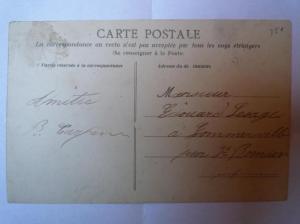 CARTE POSTALE
La correspondance au recto n'est pas acceptée par tous les pays étrangers
(Se renseigner à la Poste)
Partie réservée à la correspondance
Adresse du destinataire
Amitié
B.
Monsieur
Edouard Lesage
à Tommerville
par